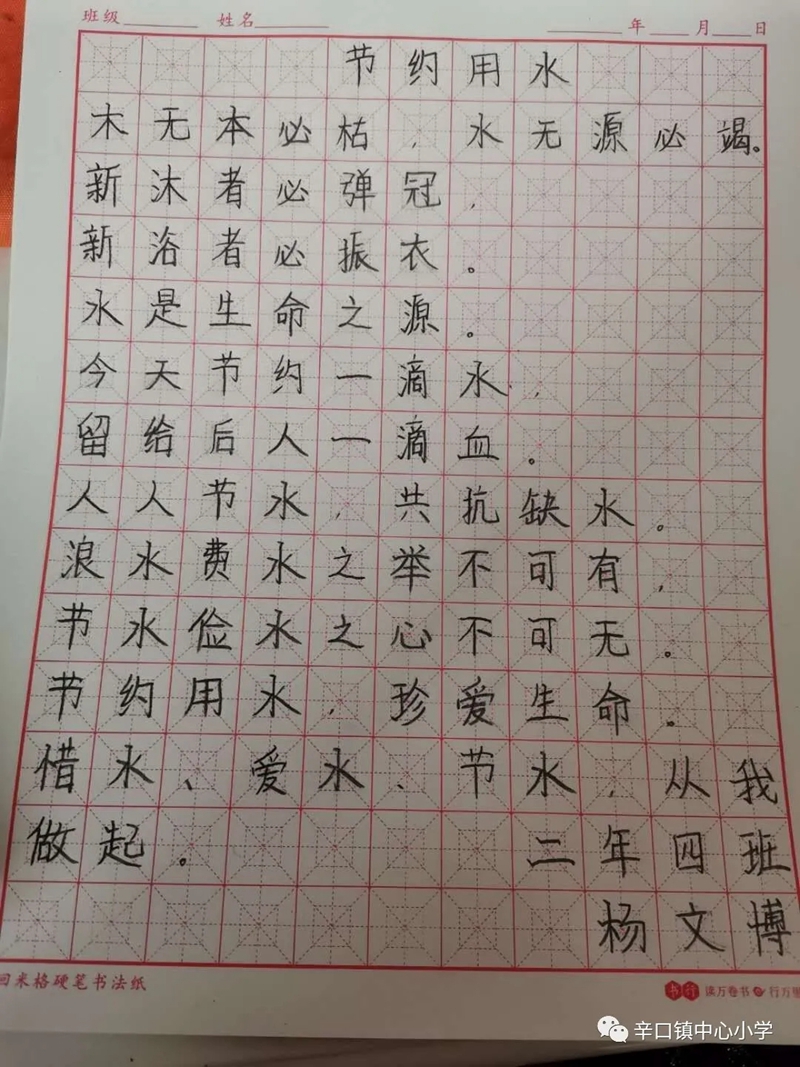 班级 姓名 年 月 日
节约用水
木无本必枯，水无源必竭。
新沐者必弹冠，
新浴者必振衣。
水是生命之源。
今天节约一滴水，
留给后人一滴血。
人人节水，共抗缺水。
浪水费水之举不可有，
节水俭水之心不可无。
节约用水，珍爱生命。
惜水、爱水、节水，从我
做起。 二年四班
杨文博
回米格硬笔书法纸
书行 读万卷书 行万里
辛口镇中心小学